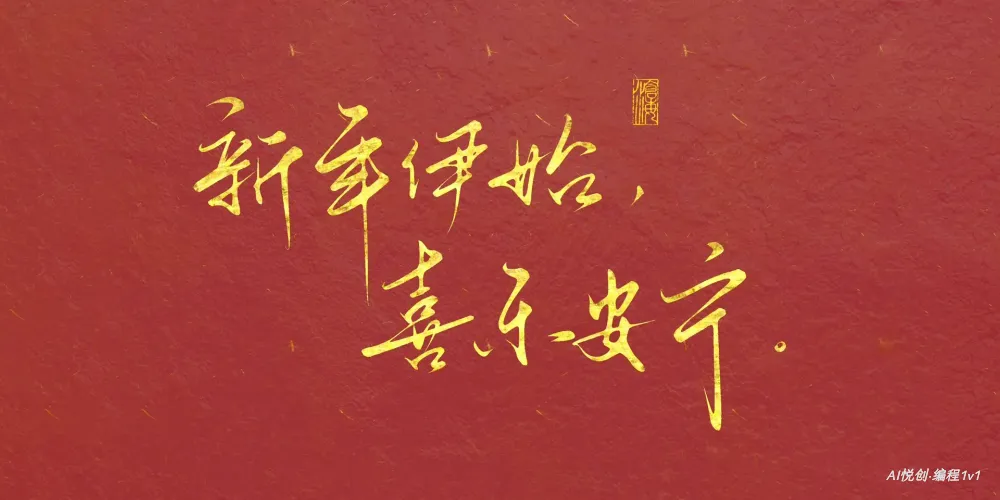 新年伊始，
喜乐安宁。
AI悦创·编程1v1